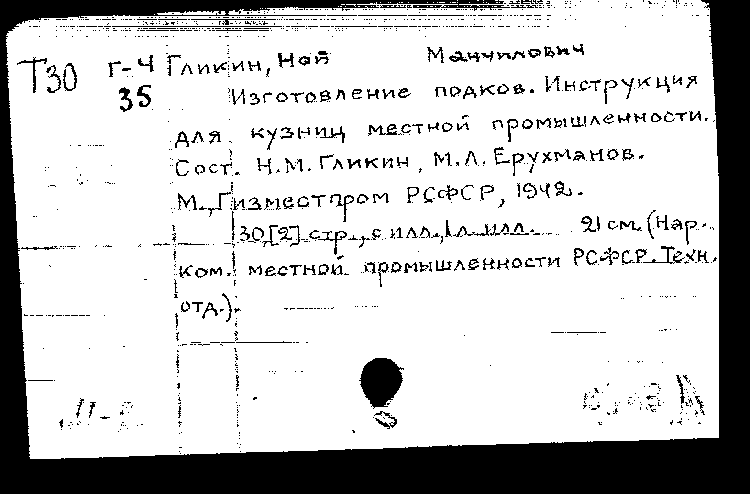 Т30 Г-4 Гликин, Ной Манчилович
35 Изготовление подков. Инструкция
для кузниц местной промышленности.
Сост. Н.М. Гликин, М.Л. Ерухманов.
М., Гизместпром РСФСР, 1942.
30,[2] стр., с илл., 1 л. илл. 21 см. (Нар.
ком. местной промышленности РСФСР. Техн.
отд.).